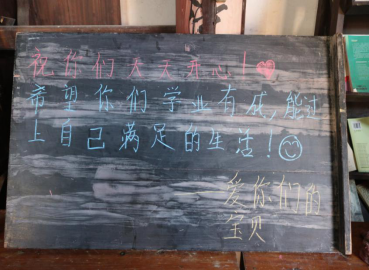 祝你们天天开心！
希望你们学业有成,能过
上自己满足的生活！
—爱你们的
宝贝